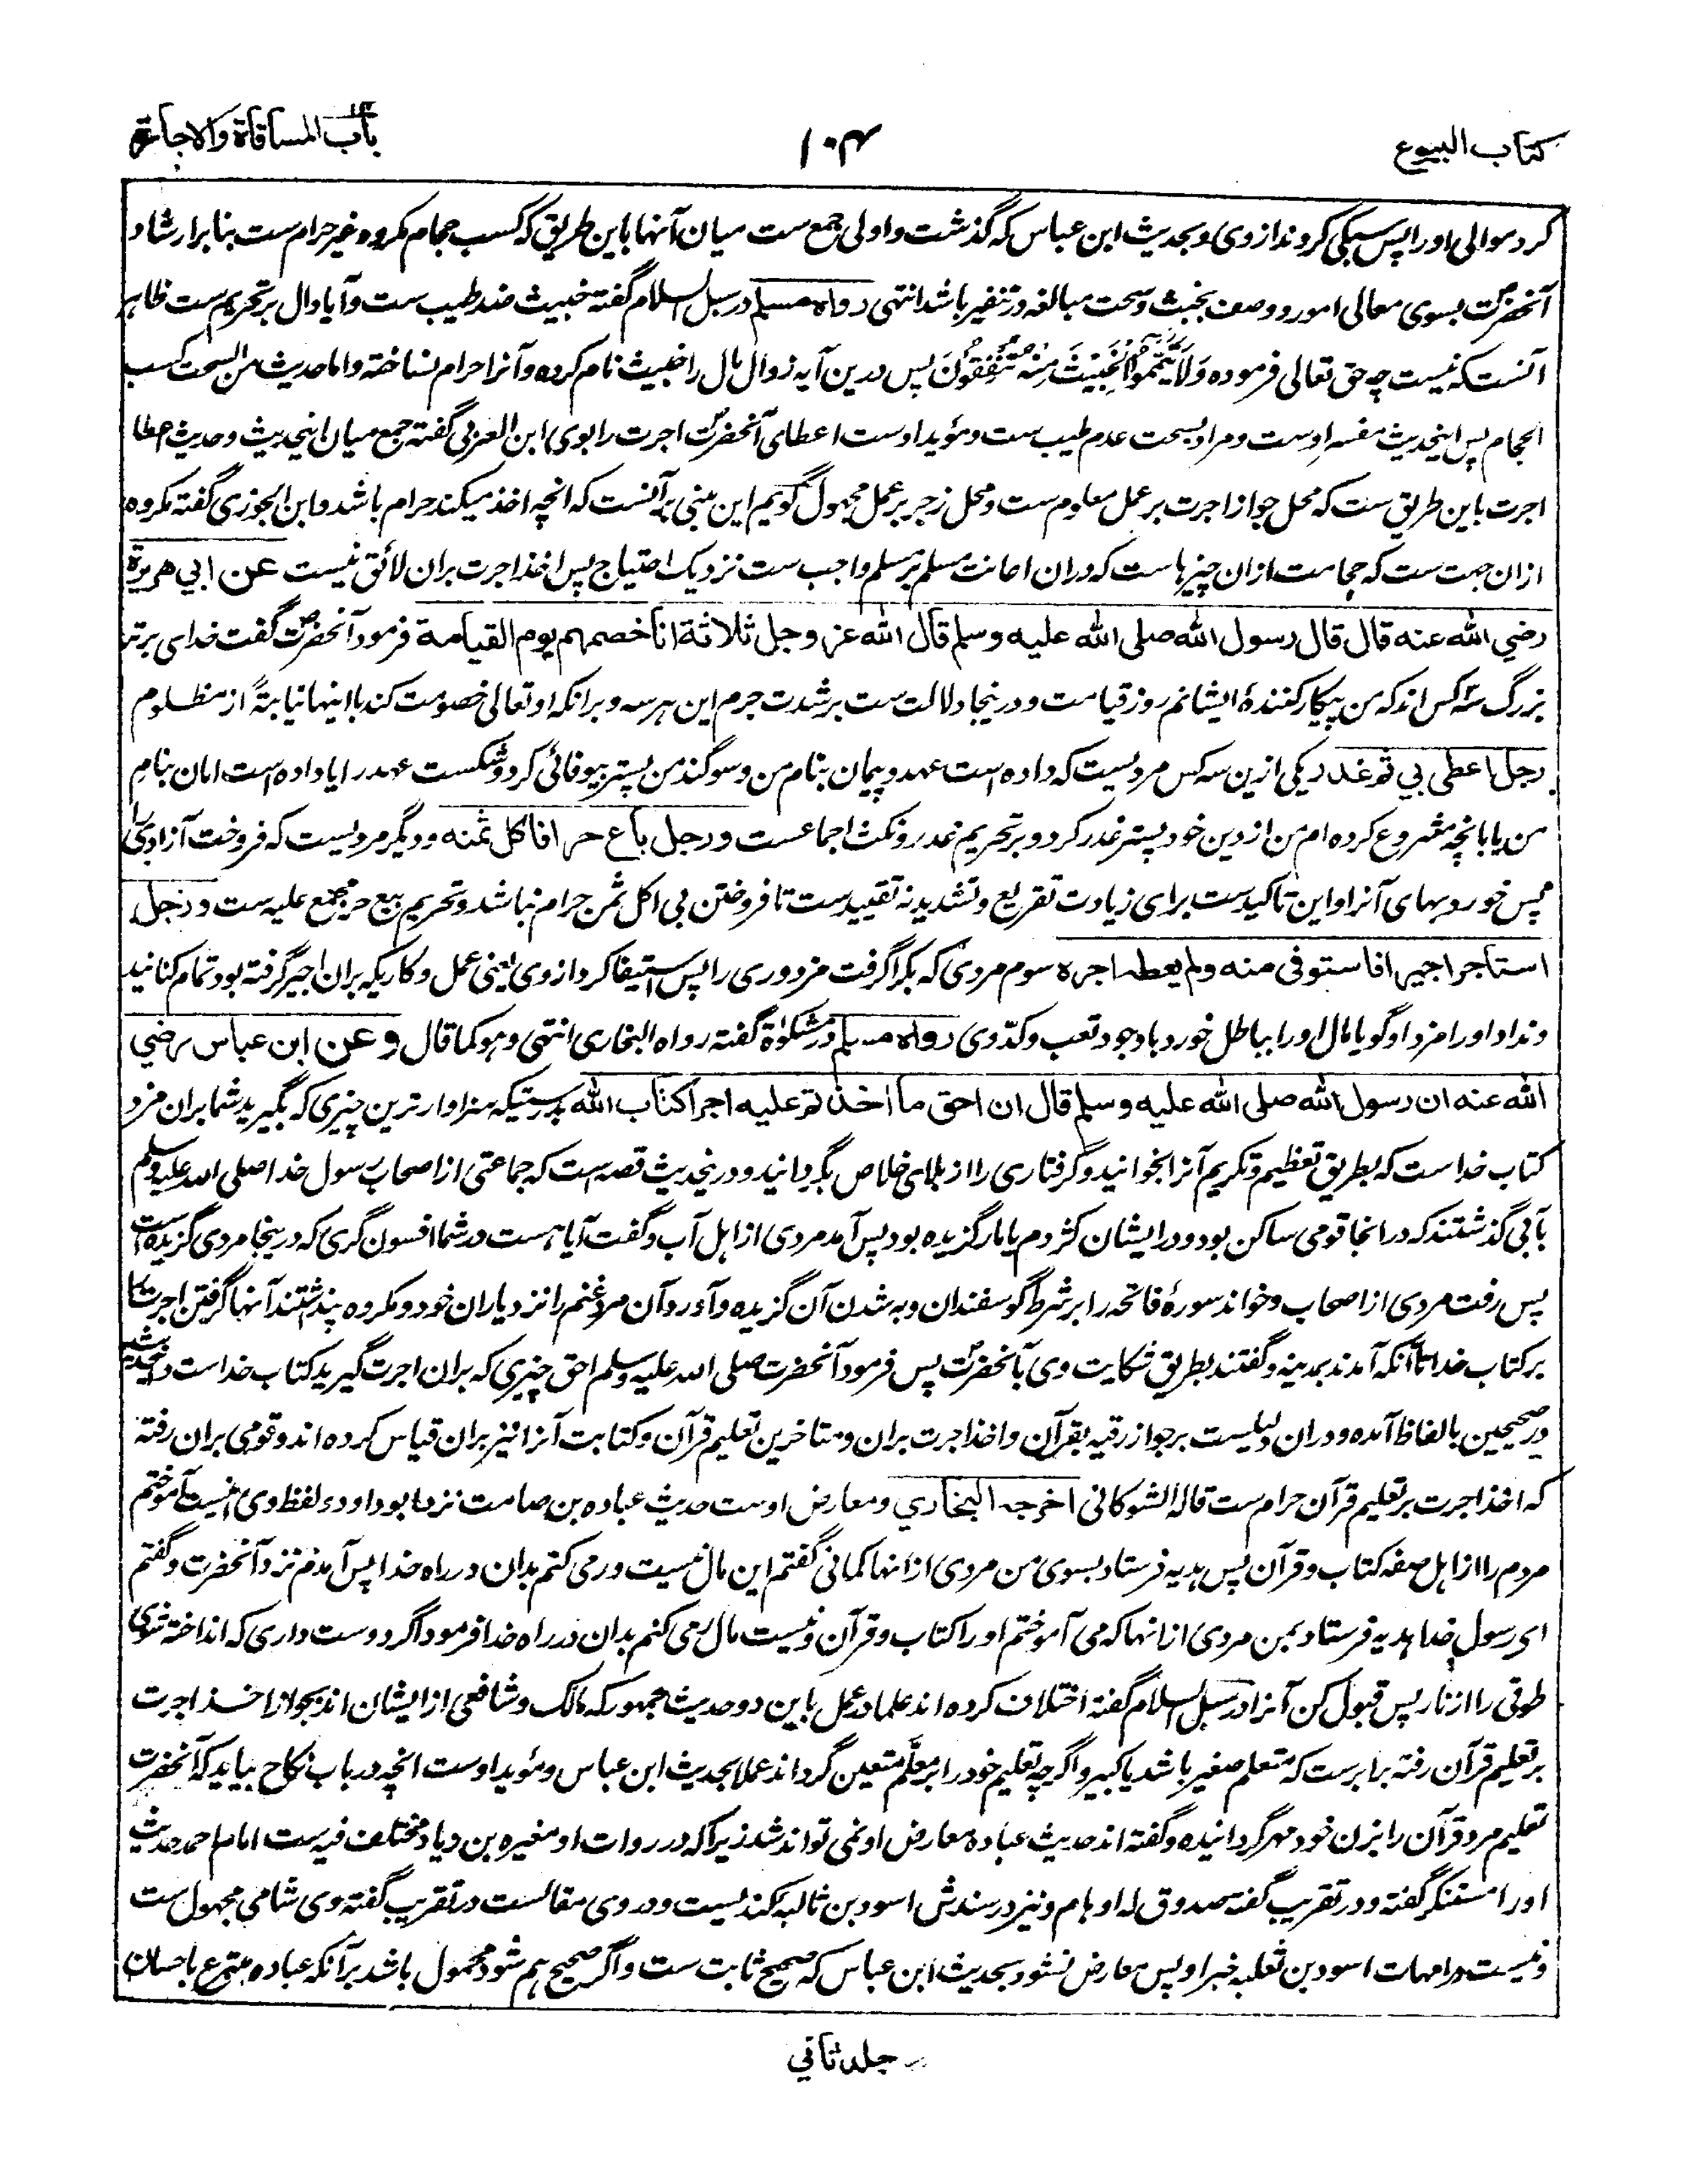 كتاب البيوع
۱۰۴
باب المساقاة والاجارة
کرد موالی او را پس سبکی کردند از وی و بحدیث ابن عباس که گذشت و اولی جمع ست میان آنها باین طریق که کسب حجام مکروه غیر حرام ست بنا بر ارشاد
آنحضرت بسوی معالی امور و وصف بخبث و سحت مبالغه در تنفیر باشد انتهی رواه مسلم در سبل السلام گفته خبیث ضد طیب ست و آیا دال بر تحریم ست ظاهر
آنست که نیست چه حق تعالی فرموده وَلَا تَيَمَّمُوا الْخَبِيثَ مِنْهُ تُنْفِقُونَ پس درین آیه رذال مال را خبیث نام کرده و آنرا حرام نساخته و اما حدیث من السحت کسب
الحجام پس اینحدیث مفسر اوست و مراد بسحت عدم طیب ست و مؤید اوست اعطای آنحضرت اجرت را بوی ابن العربی گفته جمع میان اینحدیث و حدیث اعطا
اجرت باین طریق ست که محل جواز اجرت بر عمل معلوم ست و محل زجر بر عمل مجهول گویم این مبنی بر آنست که انچه اخذ میکند حرام باشد و ابن الجوزی گفته مکروه
ازان جهت ست که حجامت ازان چیزهاست که دران اعانت مسلم بر مسلم واجب ست نزدیک احتیاج پس اخذ اجرت بران لائق نیست عن ابي هريرة
رضي الله عنه قال قال رسول الله صلى الله عليه وسلم قال الله عز وجل ثلاثة انا خصمهم يوم القيامة فرمود آنحضرت گفت خدای برتر
بزرگ سه کس اند که من پیکار کننده ایشانم روز قیامت و درینجا دلالت ست بر شدت جرم این هر سه و برانکه او تعالی خصومت کند با اینها نیابةً از مظلوم
رجل اعطى بي ثم غدر یکی ازین سه کس مردیست که داده است عهد و پیمان بنام من و سوگند من پستر بیوفائی کرد و شکست عهد را یا داده است امان بنام
من یا بانچه مشروع کرده ام من از دین خود پستر غدر کرد و بر تحریم غدر و نکث اجماعست ورجل باع حرا فاكل ثمنه و دیگر مردیست که فروخت آزادی را
پس خورد بهای آنرا و این تاکیدست برای زیادت تقریع و تشدید نه تقیید ست تا فروختن بی اکل ثمن حرام نباشد و تحریم بیع حر مجمع علیه ست ورجل
استاجر اجيرا فاستوفى منه ولم يعطه اجره سوم مردی که بکرا گرفت مزدوری را پس استیفا کرد از وی یعنی عمل و کاریکه بران اجیر گرفته بود تمام کنانید
و نداد او را مزد او گویا مال او را بباطل خورد باوجود تعب و کدّ وی رواه مسلم در مشکوٰة گفته رواه البخاری انتهی و هو کما قال وعن ابن عباس رضي
الله عنه ان رسول الله صلى الله عليه وسلم قال ان احق ما اخذتم عليه اجرا كتاب الله بدرستیکه سزاوارترین چیزی که بگیرید شما بران مزد
کتاب خداست که بطریق تعظیم و تکریم آنرا بخوانید و گرفتاری را از بلای خلاص بگردانید و درینحدیث قصه است که جماعتی از اصحاب رسول خدا صلی الله علیه وسلم
بآبی گذشتند که در انجا قومی ساکن بود و در ایشان کژدم یا مار گزیده بود پس آمد مردی از اهل آب و گفت آیا هست در شما افسون گری که درینجا مردی گزیده است
پس رفت مردی از اصحاب و خواند سورۀ فاتحه را بر شرط گوسفندان و به شدن آن گزیده و آورد آن مرد غنم را نزد یاران خود و مکروه پنداشتند آنها گرفتن اجرت را
بر کتاب خدا تا آنکه آمدند بمدینه و گفتند بطریق شکایت وی بآنحضرت پس فرمود آنحضرت صلی الله علیه وسلم احق چیزی که بران اجرت گیرید کتاب خداست و اینحدیث
در صحیحین بالفاظ آمده و دران دلیلست بر جواز رقیه بقرآن و اخذ اجرت بران و متاخرین تعلیم قرآن و کتابت آنرا نیز بران قیاس کرده اند و قومی بران رفته
که اخذ اجرت بر تعلیم قرآن حرام ست قاله الشوکانی اخرجه البخاري و معارض اوست حدیث عباده بن صامت نزد ابوداود و لفظ وی اینست آموختم
مردم را از اهل صفه کتاب و قرآن پس هدیه فرستاد بسوی من مردی ازانها کمانی گفتم این مال نیست و رمی کنم بدان در راه خدا پس آمدم نزد آنحضرت و گفتم
ای رسول خدا هدیه فرستاد بمن مردی ازانها که می آموختم او را کتاب و قرآن و نیست مال رمی کنم بدان در راه خدا فرمود اگر دوست داری که انداخته شوی
طوقی را از نار پس قبول کن آنرا در سبل السلام گفته اختلاف کرده اند علما در عمل باین دو حدیث جمهور که مالک و شافعی از ایشان اند بجواز اخذ اجرت
بر تعلیم قرآن رفته برابرست که متعلم صغیر باشد یا کبیر و اگرچه تعلیم خود را بر معلّم متعین گرداند عملا بحدیث ابن عباس و مؤید اوست انچه در باب نکاح بیاید که آنحضرت
تعلیم مرد قرآن را بزن خود مهر گردانیده و گفته اند حدیث عباده معارض او نمی تواند شد زیرا که در روات او مغیره بن دیاد مختلف فیه ست امام احمد حدیث
او را مستنکر گفته و در تقریب گفته صدوق له اوهام و نیز در سندش اسود بن ثالبه کندیست و در وی مقالست در تقریب گفته وی شامی مجهول ست
و نیست در امهات اسود بن ثعلبه خبر او پس معارض نشود بحدیث ابن عباس که صحیح ثابت ست و اگر صحیح هم شود محمول باشد بر آنکه عباده متبرع باحسان
جلد ثاني